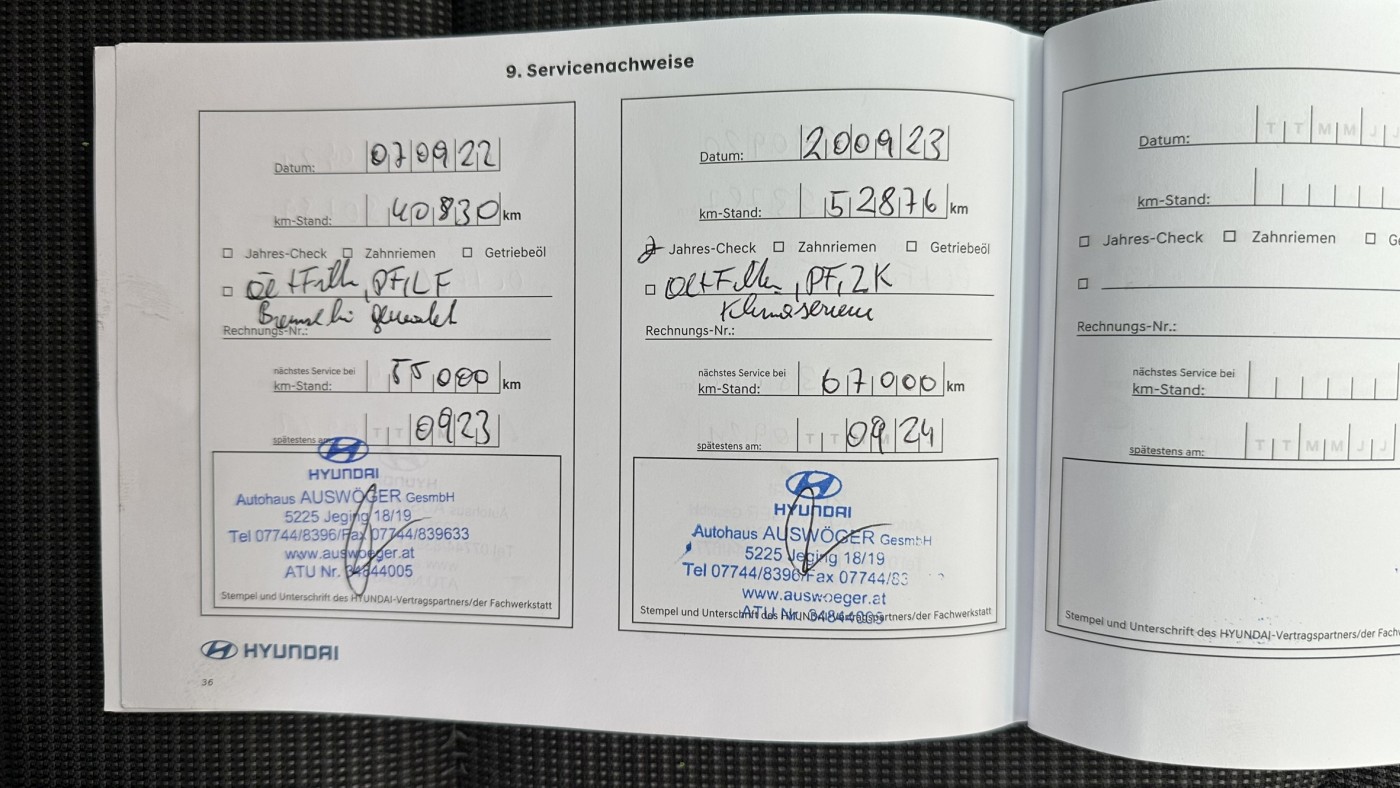 9. Servicenachweise
Datum: 070922
km-Stand: 40830 km
Jahres-Check Zahnriemen Getriebeöl
Öl+Filter, PF, LF
Bremsfl. gewechselt
Rechnungs-Nr.:
nächstes Service bei
km-Stand: 55000 km
spätestens am: TT 0923
HYUNDAI
Autohaus AUSWÖGER GesmbH
5225 Jeging 18/19
Tel 07744/8396/Fax 07744/839633
www.auswoeger.at
ATU Nr. 34844005
Stempel und Unterschrift des HYUNDAI-Vertragspartners/der Fachwerkstatt
HYUNDAI
36
Datum: 200923
km-Stand: 52876 km
Jahres-Check Zahnriemen Getriebeöl
Öl+Filter, PF, ZK
Klimaservice
Rechnungs-Nr.:
nächstes Service bei
km-Stand: 67000 km
spätestens am: TT 0924
HYUNDAI
Autohaus AUSWÖGER GesmbH
5225 Jeging 18/19
Tel 07744/8396/Fax 07744/83
www.auswoeger.at
ATU Nr.
Stempel und Unterschrift des HYUNDAI-Vertragspartners/der Fachwerkstatt
Datum: TTMMJJ
km-Stand:
Jahres-Check Zahnriemen G
Rechnungs-Nr.:
nächstes Service bei
km-Stand:
spätestens am: TTMMJJ
Stempel und Unterschrift des HYUNDAI-Vertragspartners/der Fachw